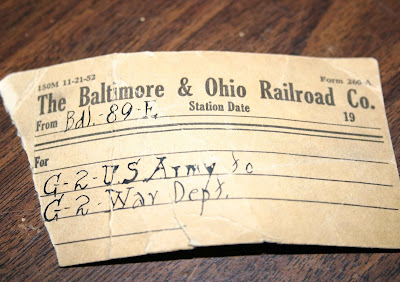 150M 11-21-52 Form 260-A
The Baltimore & Ohio Railroad Co.
From Bdl.-89-F. Station Date 19
For
G-2-U.S. Army to
G-2-War Dept.